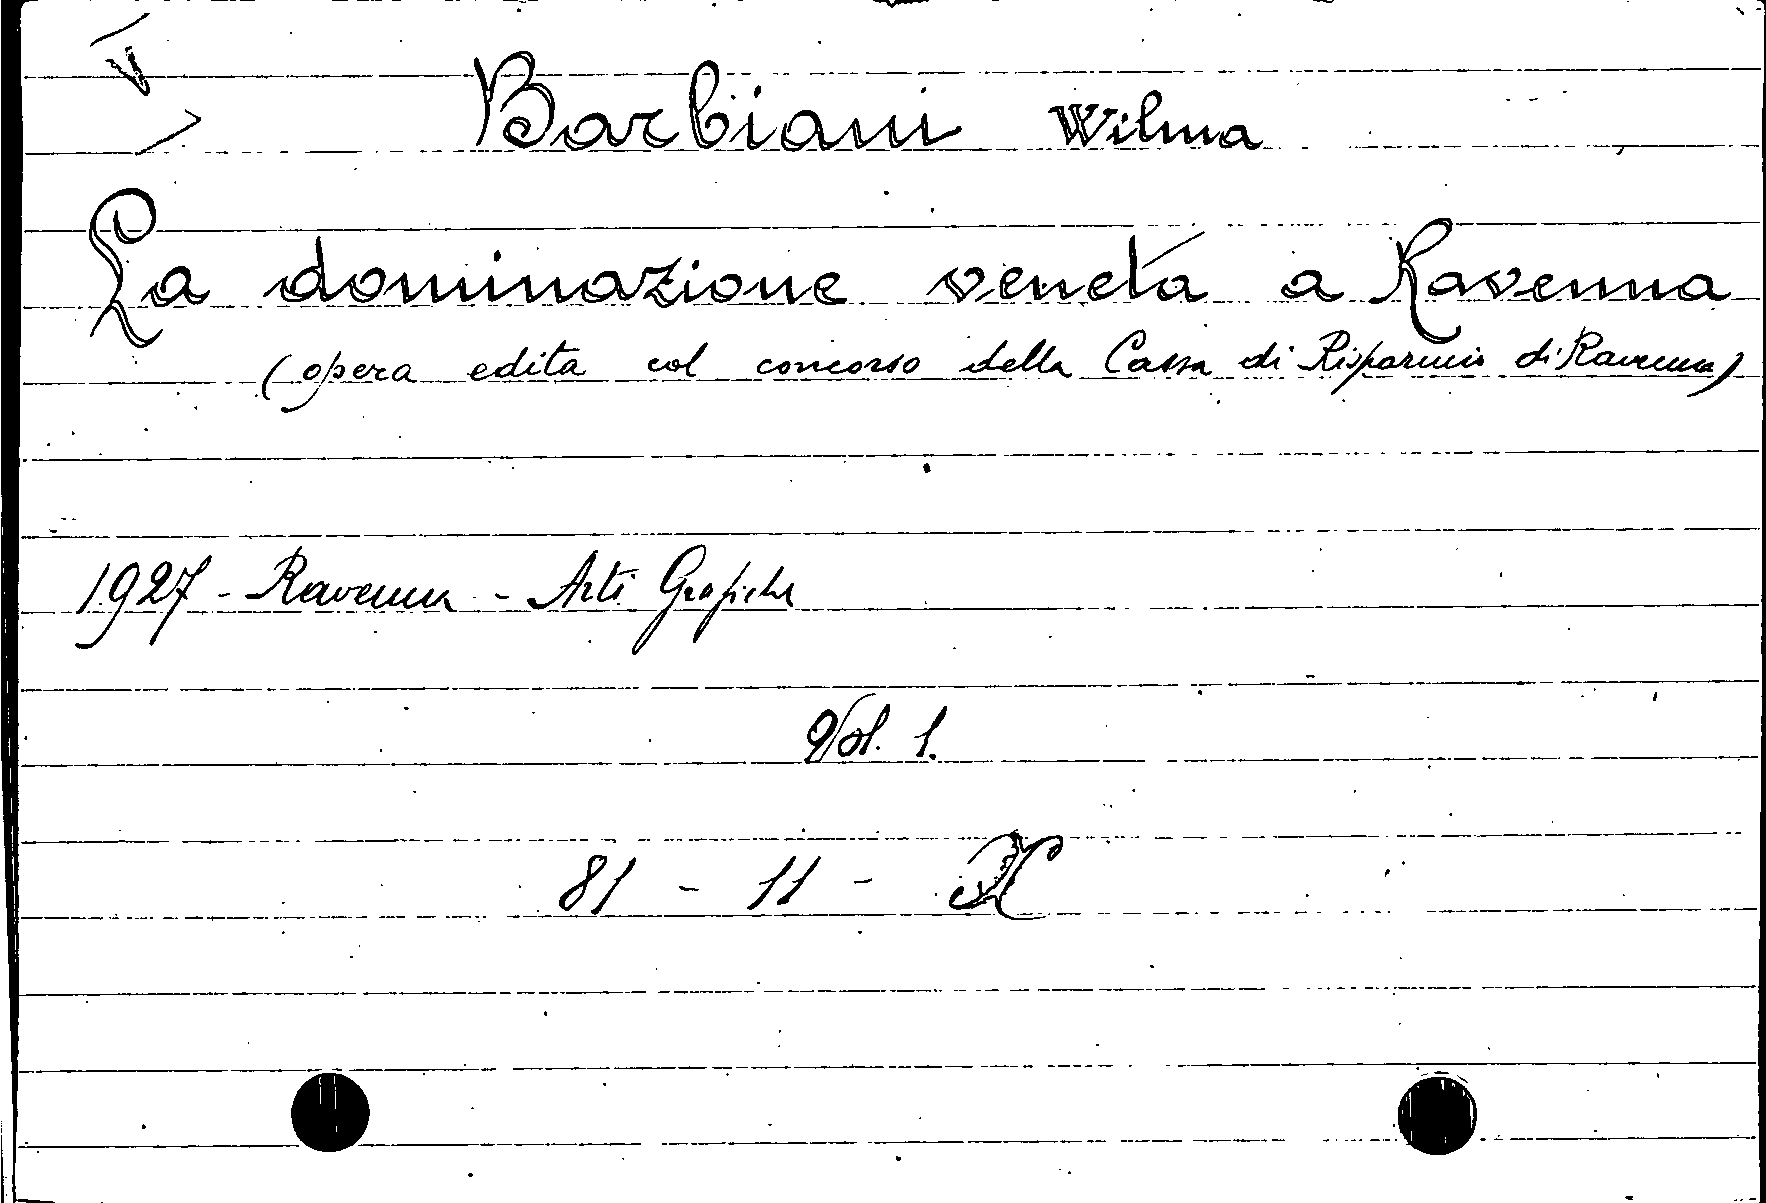 V
Barbiani Wilma
La dominazione veneta a Ravenna
(opera edita col concorso della Cassa di Risparmio di Ravenna)
1927 - Ravenna - Arti Grafiche
Vol. 1.
81 - 11 - X